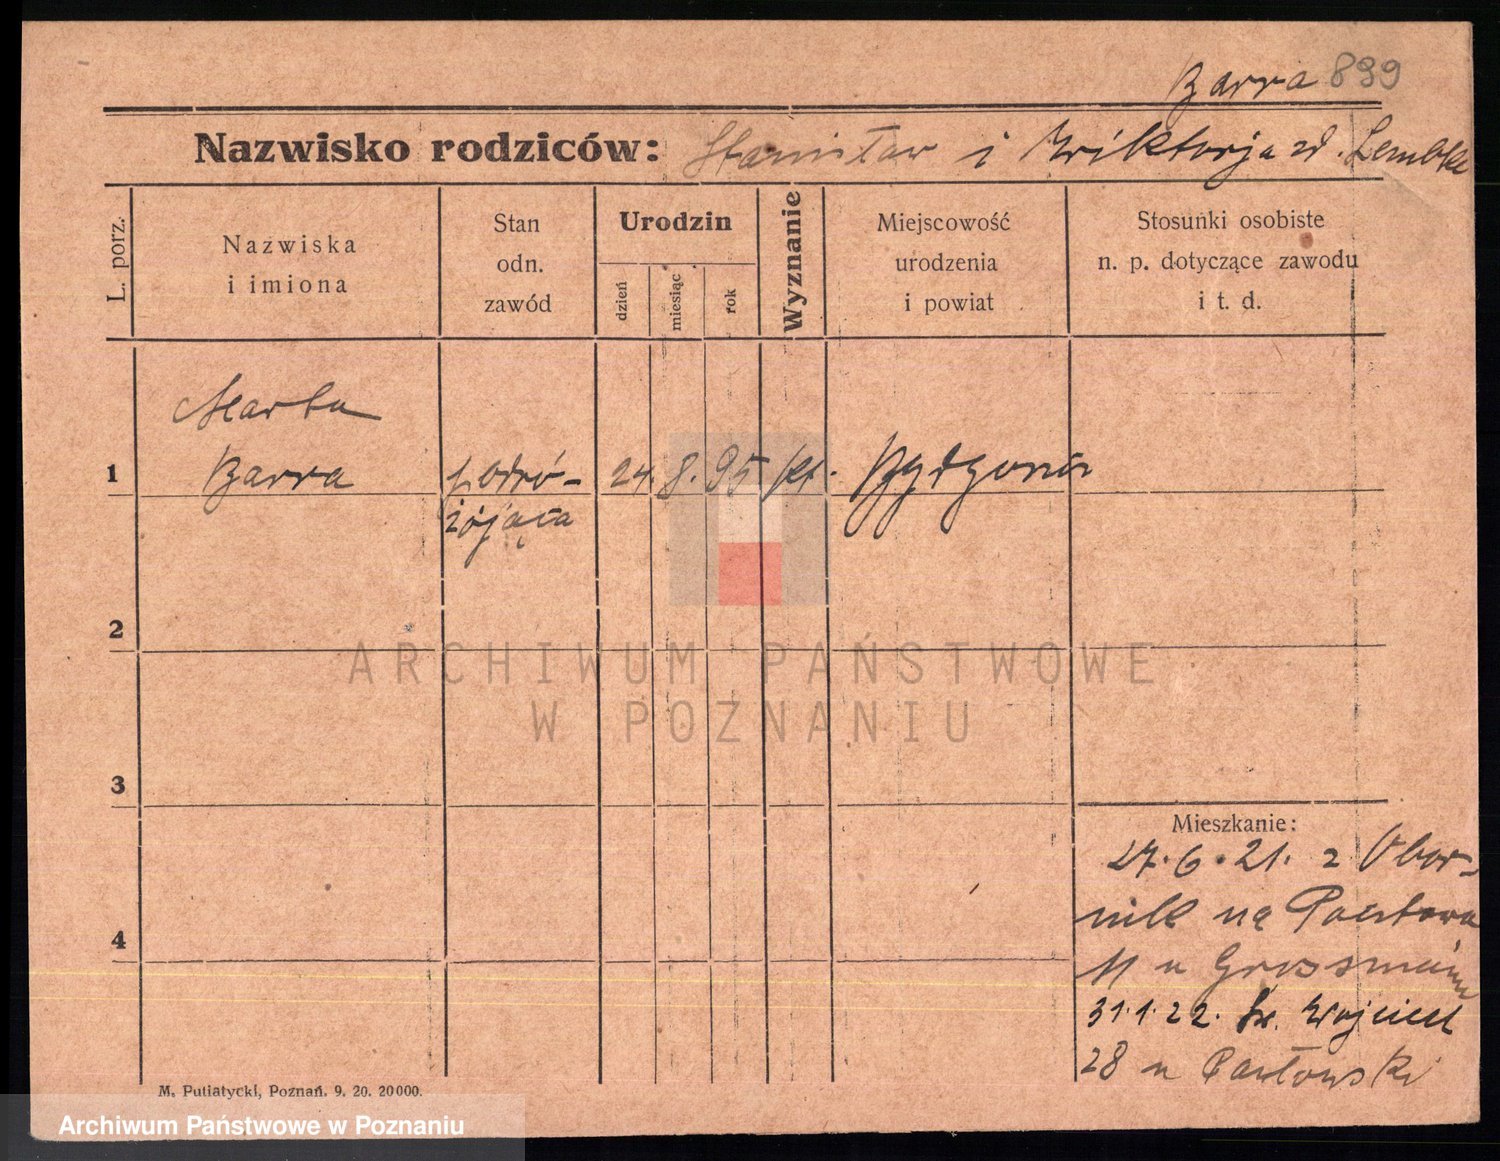 Barra 899
Nazwisko rodziców: Stanisław i Wiktorja zd. Lembke
L. porz.
Nazwiska
i imiona
Stan
odn.
zawód
Urodzin
dzień
miesiąc
rok
Wyznanie
Miejscowość
urodzenia
i powiat
Stosunki osobiste
n. p. dotyczące zawodu
i t. d.
Marta
1 Barra podró- 24. 8. 95 kt. Bydgoszcz
żująca
2
3
4
Mieszkanie:
27.6.21. z Obor-
nik na Pocztowa
11 u Grossmann
31.1.22. Św. Wojciech
28 u
M. Putiatycki, Poznań. 9. 20. 20000.
ARCHIWUM PAŃSTWOWE
W POZNANIU
Archiwum Państwowe w Poznaniu